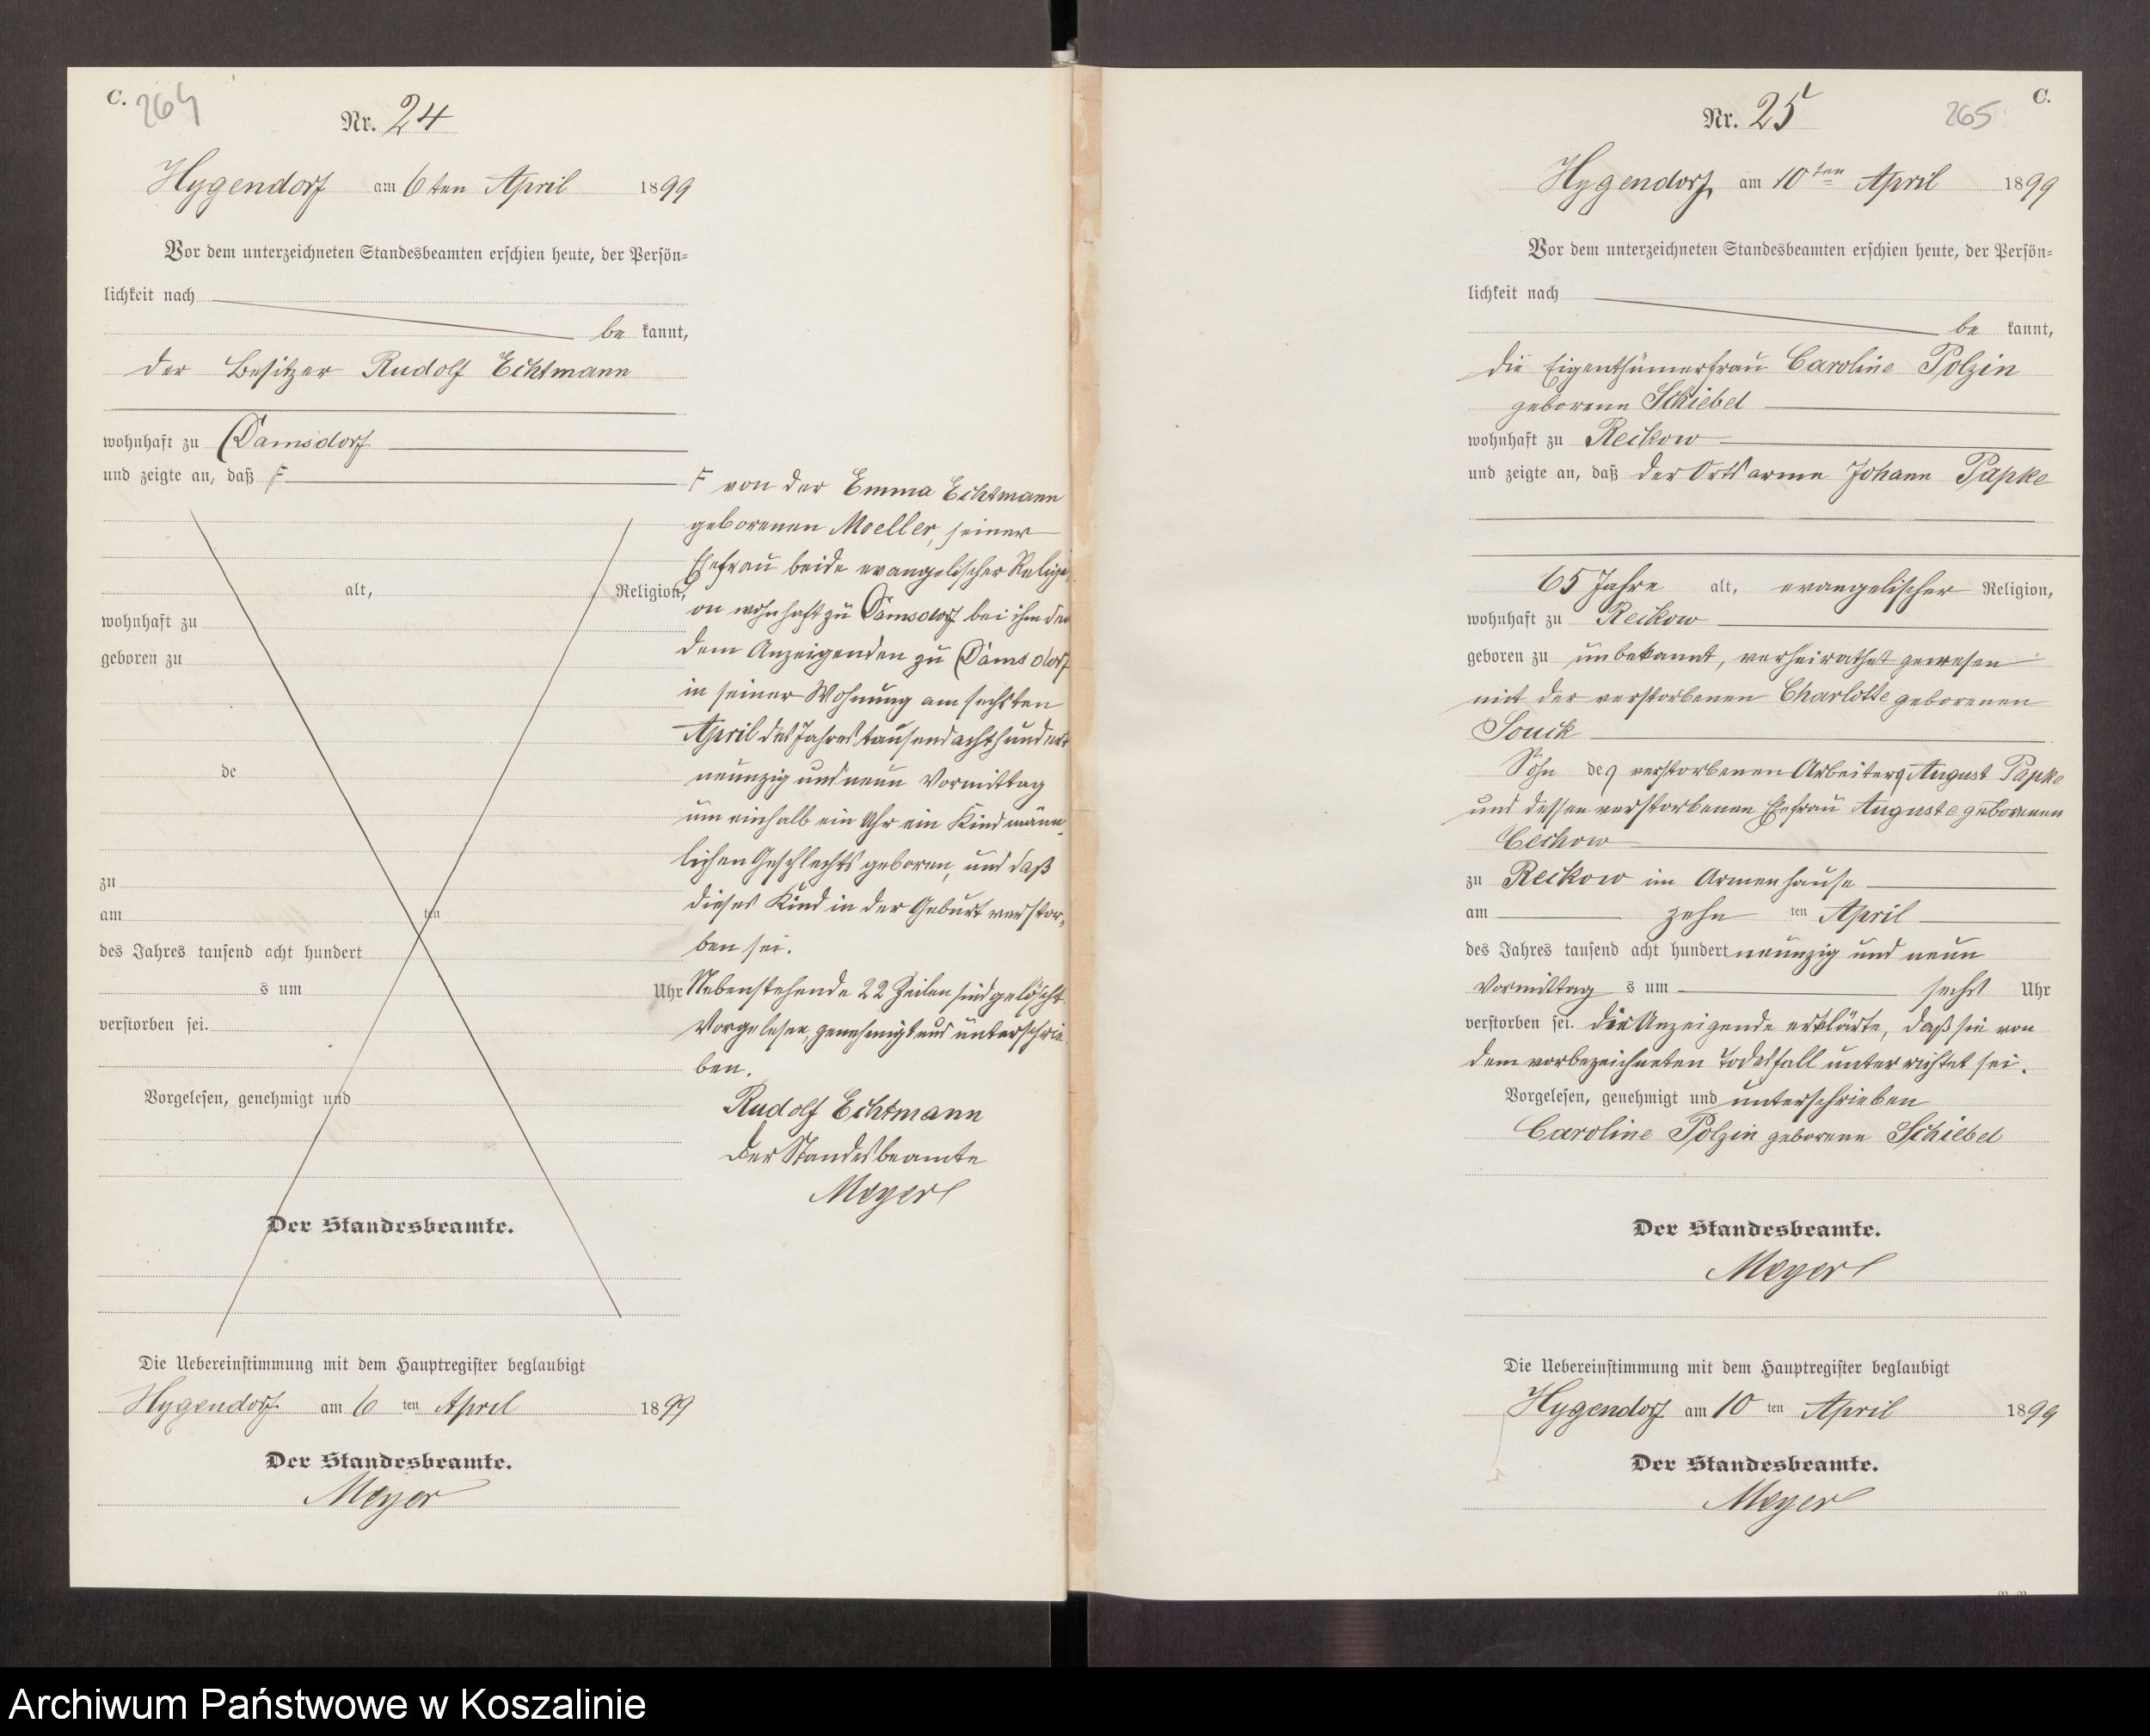 C.
264
Nr. 24
Hygendorf am 6ten April 1899
Vor dem unterzeichneten Standesbeamten erschien heute, der Persön-
lichkeit nach
be kannt,
der Besitzer Rudolf Echtmann
wohnhaft zu Damsdorf
und zeigte an, daß F
alt, Religion,
wohnhaft zu
geboren zu
de
zu
am ten
des Jahres tausend acht hundert
s um Uhr
verstorben sei.
Vorgelesen, genehmigt und
Der Standesbeamte.
F von der Emma Echtmann
geborenen Moeller, seiner
Ehefrau beide evangelischer Religi-
on wohnhaft zu Damsdorf bei ihm
dem Anzeigenden zu Damsdorf
in seiner Wohnung am sechsten
April des Jahres tausend achthundert
neunzig und neun Vormittag
um einhalb ein Uhr ein Kind männ-
lichen Geschlechts geboren, und daß
dieses Kind in der Geburt verstor-
ben sei.
Nebenstehende 22 Zeilen sind gelöscht.
Vorgelesen, genehmigt und unterschrie-
ben.
Rudolf Echtmann
Der Standesbeamte
Meyer
Die Uebereinstimmung mit dem Hauptregister beglaubigt
Hygendorf am 6 ten April 1899
Der Standesbeamte.
Meyer
C.
265
Nr. 25
Hygendorf am 10ten April 1899
Vor dem unterzeichneten Standesbeamten erschien heute, der Persön-
lichkeit nach
be kannt,
die Eigenthümerfrau Caroline Polzin
geborene Schiebel
wohnhaft zu Reckow
und zeigte an, daß der Ortsarme Johann Papke
65 Jahre alt, evangelischer Religion,
wohnhaft zu Reckow
geboren zu unbekannt, verheirathet gewesen
mit der verstorbenen Charlotte geborenen
Souck
Sohn des verstorbenen Arbeiters August Papke
und dessen verstorbenen Ehefrau Auguste geborenen
Cechow
zu Reckow im Armenhause
am zehn ten April
des Jahres tausend acht hundert neunzig und neun
Vormittag s um sechs Uhr
verstorben sei. Die Anzeigende erklärte, daß sie von
dem vorbezeichneten Todesfall unterrichtet sei.
Vorgelesen, genehmigt und unterschrieben
Caroline Polzin geborene Schiebel
Der Standesbeamte.
Meyer
Die Uebereinstimmung mit dem Hauptregister beglaubigt
Hygendorf am 10 ten April 1899
Der Standesbeamte.
Meyer
Archiwum Państwowe w Koszalinie